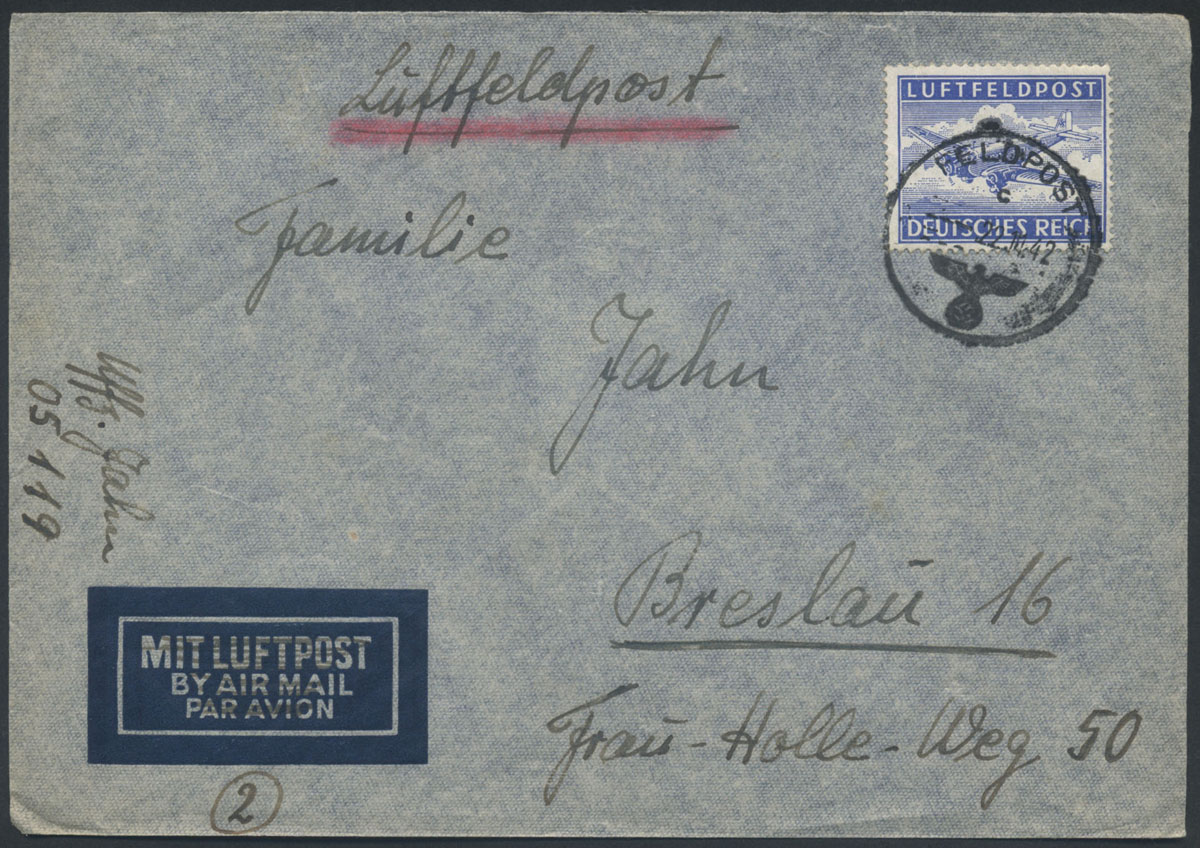 Luftfeldpost
LUFTFELDPOST
DEUTSCHES REICH
FELDPOST
c
22.10.42
Familie
Jahn
Breslau 16
Frau-Holle-Weg 50
Uffz. Jahn
05119
MIT LUFTPOST
BY AIR MAIL
PAR AVION
2